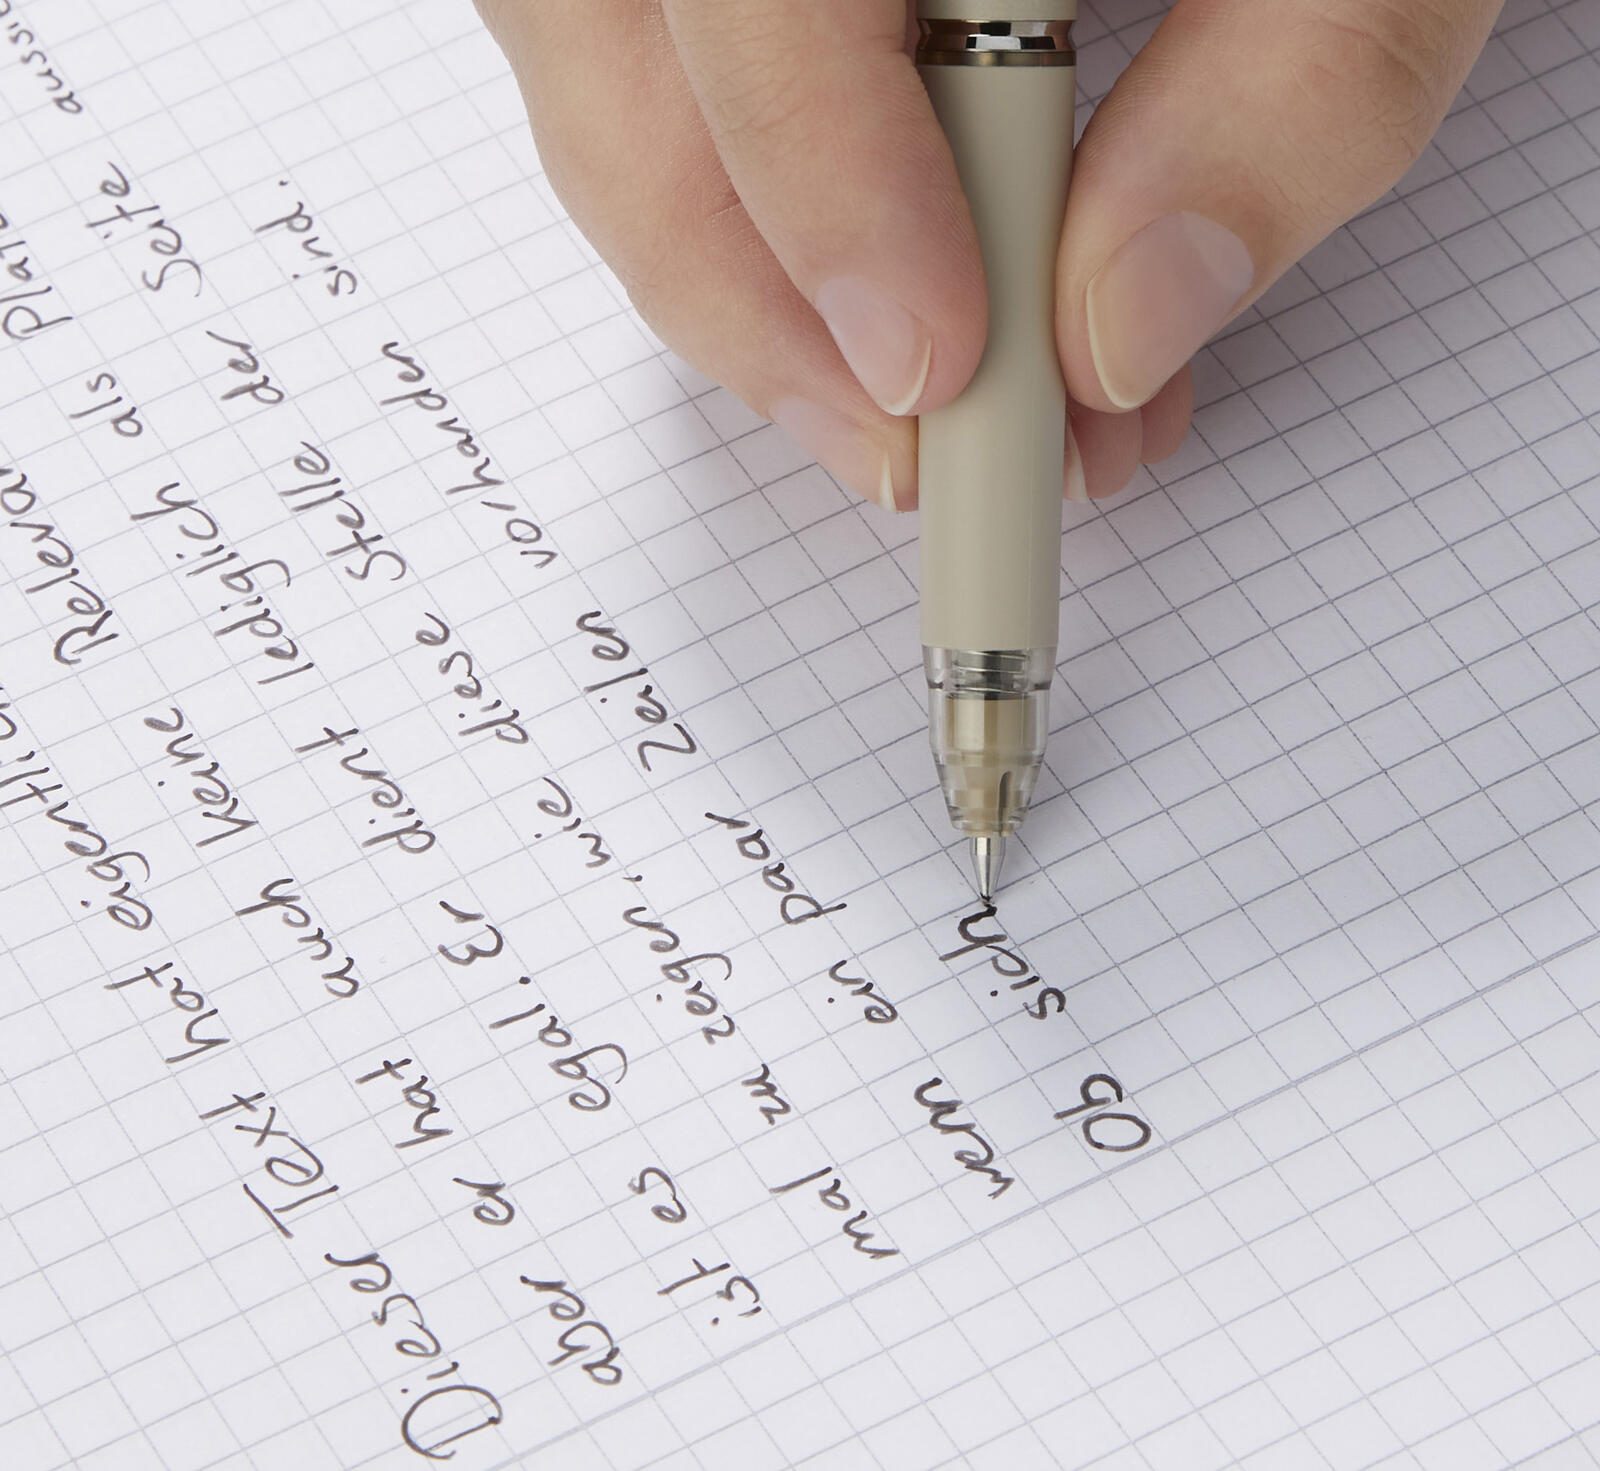 Dieser Text hat eigentlic
aber er hat auch keine Releva
ist es egal. Er dient lediglich als Platz
mal zu zeigen, wie diese Stelle der Seite aussie
wenn ein paar Zeilen vorhanden sind.
Ob sich